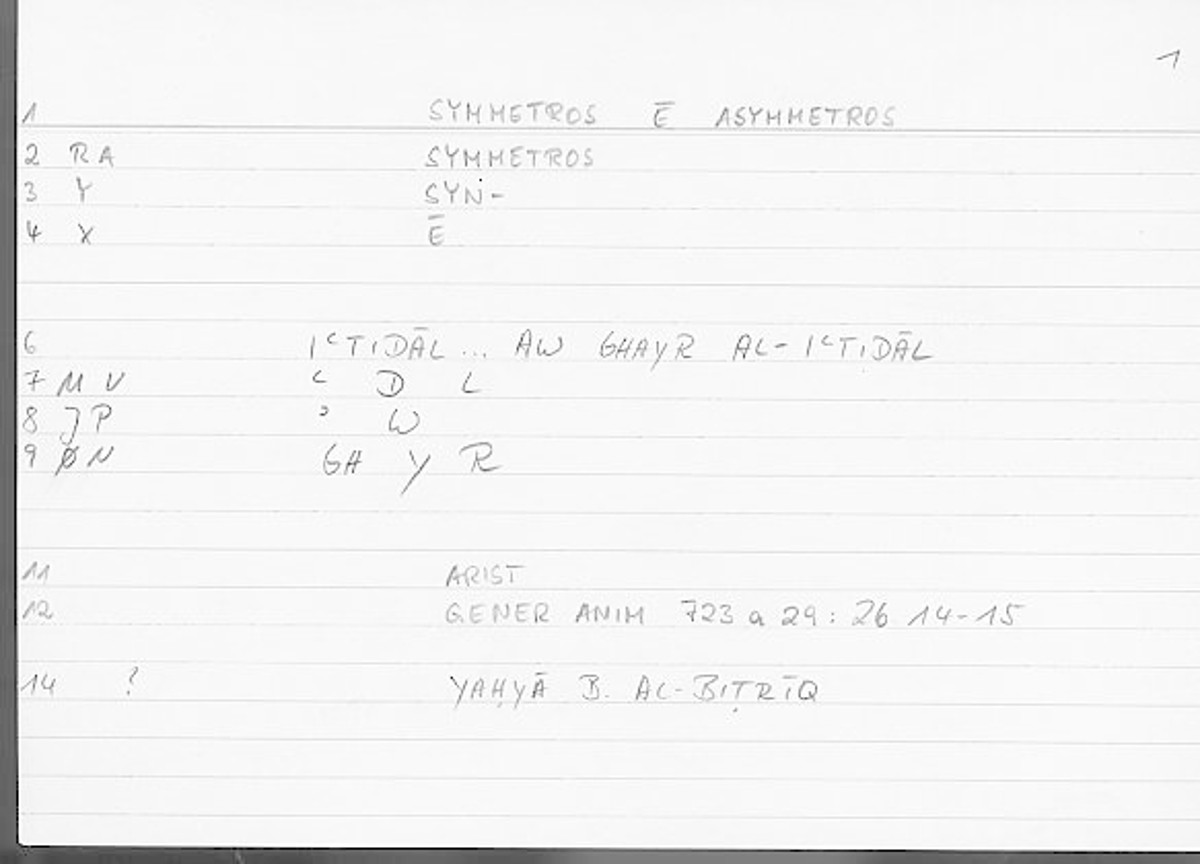 1
1 SYMMETROS Ē ASYMMETROS
2 RA SYMMETROS
3 Y SYN-
4 X Ē
6 IʿTIDĀL ... AW GHAYR AL-IʿTIDĀL
7 M V ʿ D L
8 JP ʾ W
9 ØN GH Y R
11 ARIST
12 GENER ANIM 723 a 29 : 26 14-15
14 ? YAḤYĀ B. AL-BIṬRĪQ